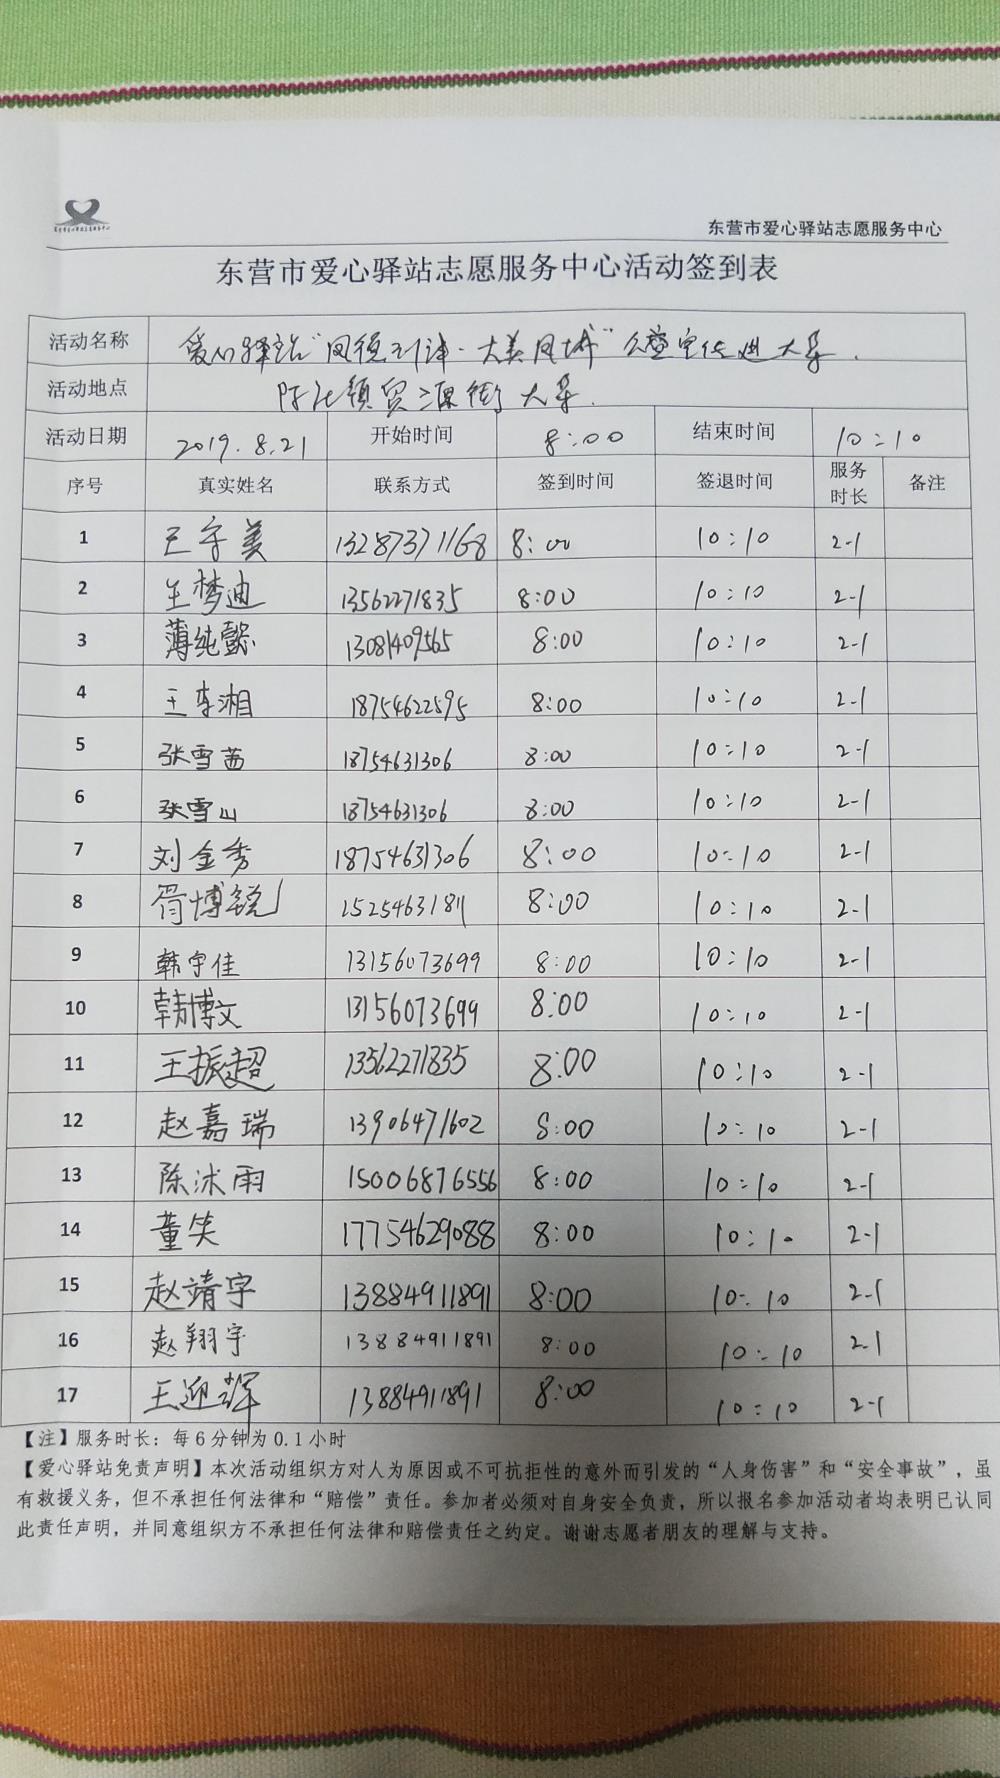 东营市爱心驿站志愿服务中心
东营市爱心驿站志愿服务中心活动签到表
活动名称 爱心驿站"凤德利津·大美凤城"公益宣传进大集.
活动地点 陈庄镇贸源街大集.
活动日期 2019.8.21 开始时间 8:00 结束时间 10:10
序号 真实姓名 联系方式 签到时间 签退时间 服务时长 备注
1 王守美 13287371168 8:00 10:10 2.1
2 王梦迪 13562271835 8:00 10:10 2.1
3 薄纯懿 13081409565 8:00 10:10 2.1
4 王李湘 18754622595 8:00 10:10 2.1
5 张雪茜 18754631306 8:00 10:10 2.1
6 张雪山 18754631306 8:00 10:10 2.1
7 刘金秀 18754631306 8:00 10:10 2.1
8 胥博锐 15254631811 8:00 10:10 2.1
9 韩宇佳 13156073699 8:00 10:10 2.1
10 韩博文 13156073699 8:00 10:10 2.1
11 王振超 13562271835 8:00 10:10 2.1
12 赵嘉瑞 13906471602 8:00 10:10 2.1
13 陈沭雨 15006876556 8:00 10:10 2.1
14 董笑 17754629088 8:00 10:10 2.1
15 赵靖宇 13884911891 8:00 10:10 2.1
16 赵翔宇 13884911891 8:00 10:10 2.1
17 王迎辉 13884911891 8:00 10:10 2.1
【注】服务时长：每6分钟为0.1小时
【爱心驿站免责声明】本次活动组织方对人为原因或不可抗拒性的意外而引发的“人身伤害”和“安全事故”，虽
有救援义务，但不承担任何法律和“赔偿”责任。参加者必须对自身安全负责，所以报名参加活动者均表明已认同
此责任声明，并同意组织方不承担任何法律和赔偿责任之约定。谢谢志愿者朋友的理解与支持。